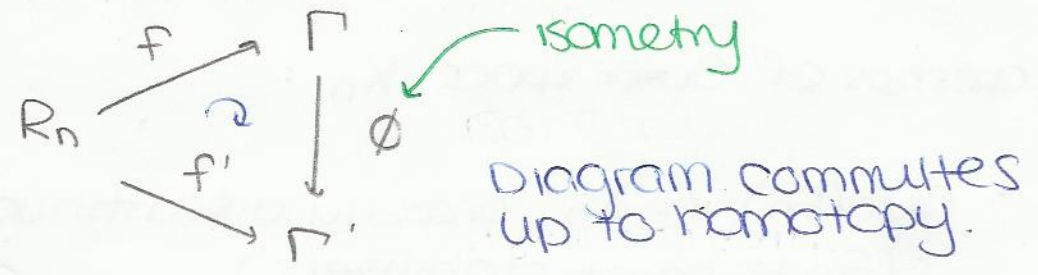 f Γ isometry
Rn φ
f' Diagram commutes
Γ' up to homotopy.